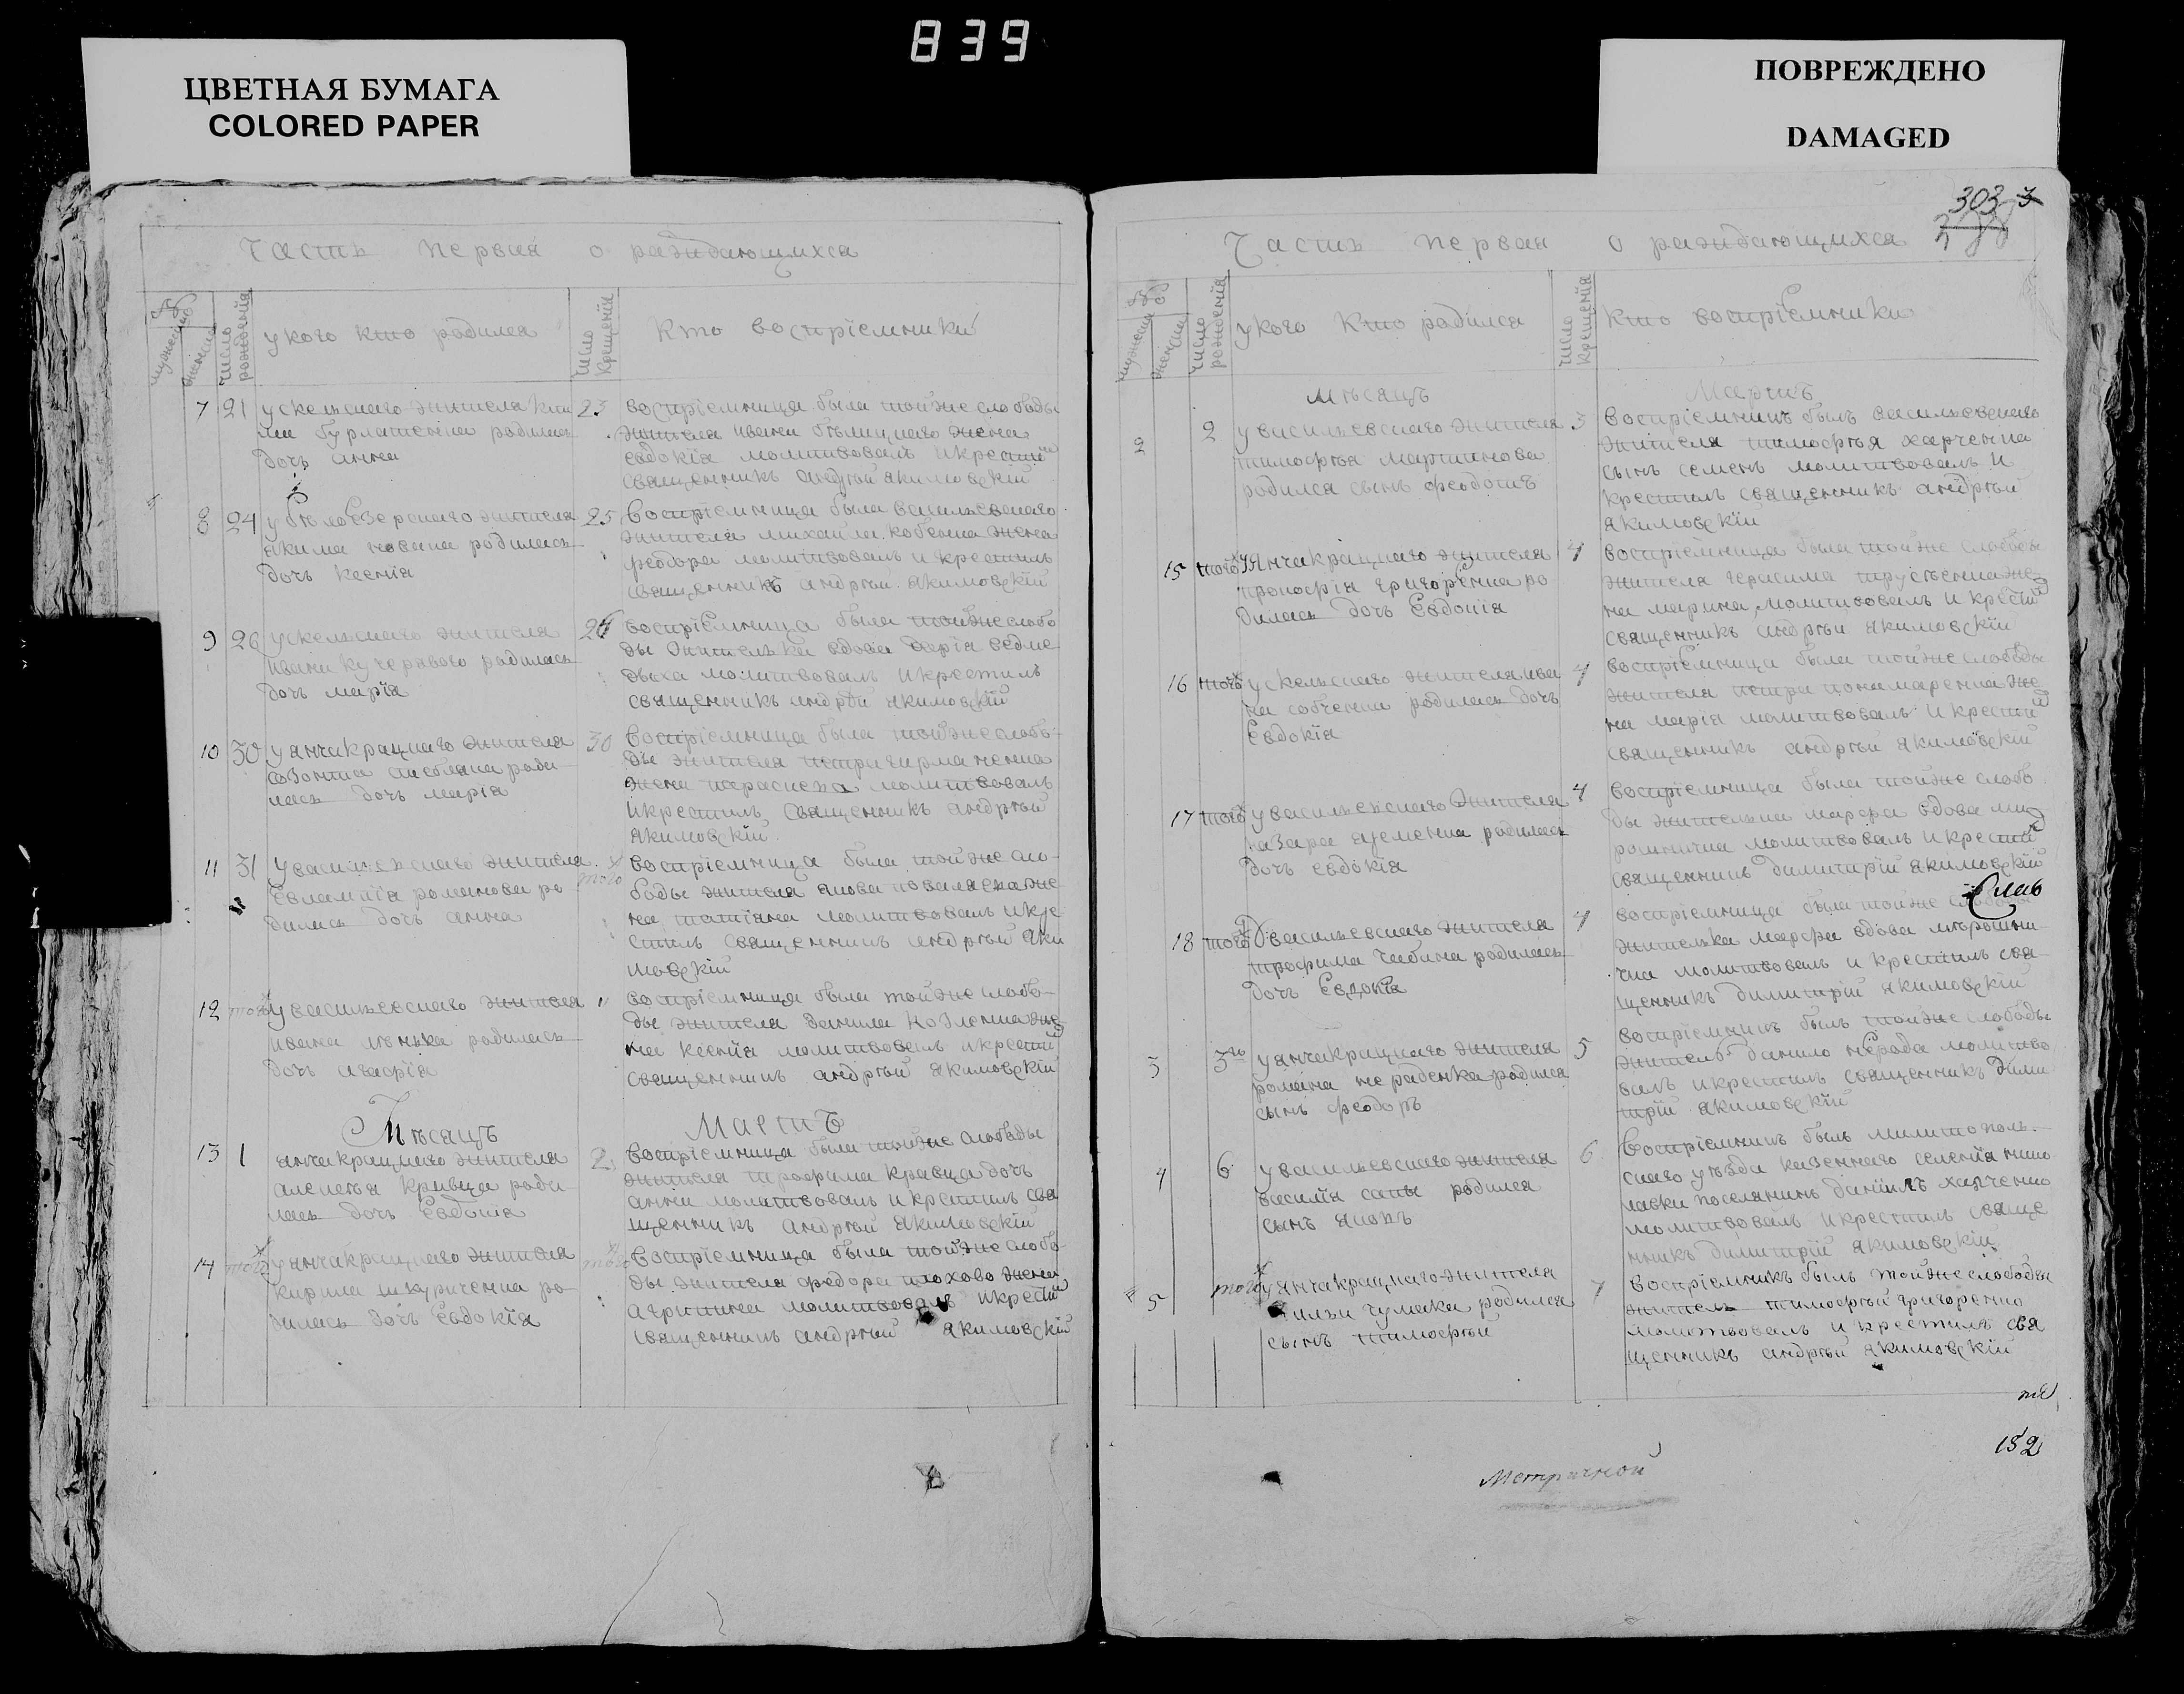 839
ЦВЕТНАЯ БУМАГА
COLORED PAPER
ПОВРЕЖДЕНО
DAMAGED
Часть первая о раждающихся
мужеска
женска
число рожденія
укого кто родился
число крещенія
Кто воспріемники
7 21 ускельскаго жителя
родилась
дочь анна
23 воспріемница была тойже слободы
жителя ивана жена
евдокія молитвовалъ икрестил
священникъ андрѣй якимовскій
8 24 у бѣлоезерскаго жителя
якима новака родилась
дочь ксенія
25 воспріемница была васильевскаго
жителя михайла жена
феодора молитвовалъ и крестилъ
священникъ андрѣй якимовскій
9 26 ускельскаго жителя
ивана кучерявого родилась
дочь марія
26 воспріемница была тойже слобо
ды жителька вдова дарія ведме
дьха молитвовалъ икрестилъ
священникъ андрѣй якимовскій
10 30 уянчакрацкаго жителя
роди
лась дочь марія
30 воспріемница была тойже слобо
ды жителя петра
жена параскева молитвовалъ
икрестилъ священникъ андрѣй
якимовскій
11 31 увасильевскаго жителя
евлампія романова ро
дилась дочь анна
того воспріемница была тойже сло
боды жителя якова же
на татіана молитвовалъ икре
стилъ священникъ андрѣй яки
мовскій
12 того увасильевскаго жителя
ивана родилась
дочь агафія
воспріемница была тойже слобо
ды жителя данила козленка же
на ксенія молитвовалъ икрести
священникъ андрѣй якимовскій
Мѣсяцъ Мартъ
13 1 янчакрацкаго жителя
алексѣя кривца роди
лась дочь Евдокія
2 воспріемница была тойже слободы
жителя трофима кравца дочь
анна молитвовалъ икрестилъ свя
щенникъ андрѣй якимовскій
14 того уянчакрацкаго жителя
кирила шкуриченка ро
дилась дочь Евдокія
того воспріемница была тойже слобо
ды жителя федора плохово жена
агрипина молитвовалъ икрести
священникъ андрѣй якимовскій
303
Часть первая о раждающихся
мужеска
женска
число рожденія
укого кто родился
число крещенія
кто воспріемники
мѣсяцъ Мартъ
2 2 увасильевскаго жителя
тимофѣя мартинова
родился сынъ феодотъ
3 воспріемникъ былъ васильевскаго
жителя тимофѣя харченка
сынъ семенъ молитвовалъ и
крестилъ священникъ андрѣй
якимовскій
15 того уянчакрацкаго жителя
прокофія григоренка ро
дилась дочь Евдокія
4 воспріемница была тойже слободы
жителя герасима же
на марина молитвовалъ и крести
священникъ андрѣй якимовскій
16 того ускельскаго жителя ива
на собченка родилась дочь
Евдокія
4 воспріемница была тойже слободы
жителя петра понамаренка же
на марія молитвовалъ и крестил
священникъ андрѣй якимовскій
17 того увасильевскаго жителя
назара родилась
дочь евдокія
4 воспріемница была тойже слобо
ды жителька марфа вдова ми
рошничка молитвовалъ икрести
священникъ димитрій якимовскій
18 того увасильевскаго жителя
трофима родилась
дочь Евдокія
4 воспріемница была тойже слободы
жителька марфа вдова мѣрошни
чка молитвовалъ и крестилъ свя
щенникъ димитрій якимовскій
3 3го уянчакрацкаго жителя
романа нераденка родился
сынъ феодоръ
5 воспріемникъ былъ тойже слободы
житель данило нерада молитво
валъ икрестилъ священникъ дими
трій якимовскій
4 6 увасильевскаго жителя
василія сапы родился
сынъ яковъ
6 воспріемникъ былъ милитополь
скаго уѣзда казеннаго селенія
поселянинъ даніилъ харченко
молитвовалъ икрестилъ свяще
нникъ димитрій якимовскій
5 того уянчакрацкаго жителя
ильи чумака родился
сынъ тимофѣй
7 воспріемникъ былъ тойже слободы
житель тимофѣй григоренко
молитвовалъ и крестилъ свя
щенникъ андрѣй якимовскій
152
Метричной